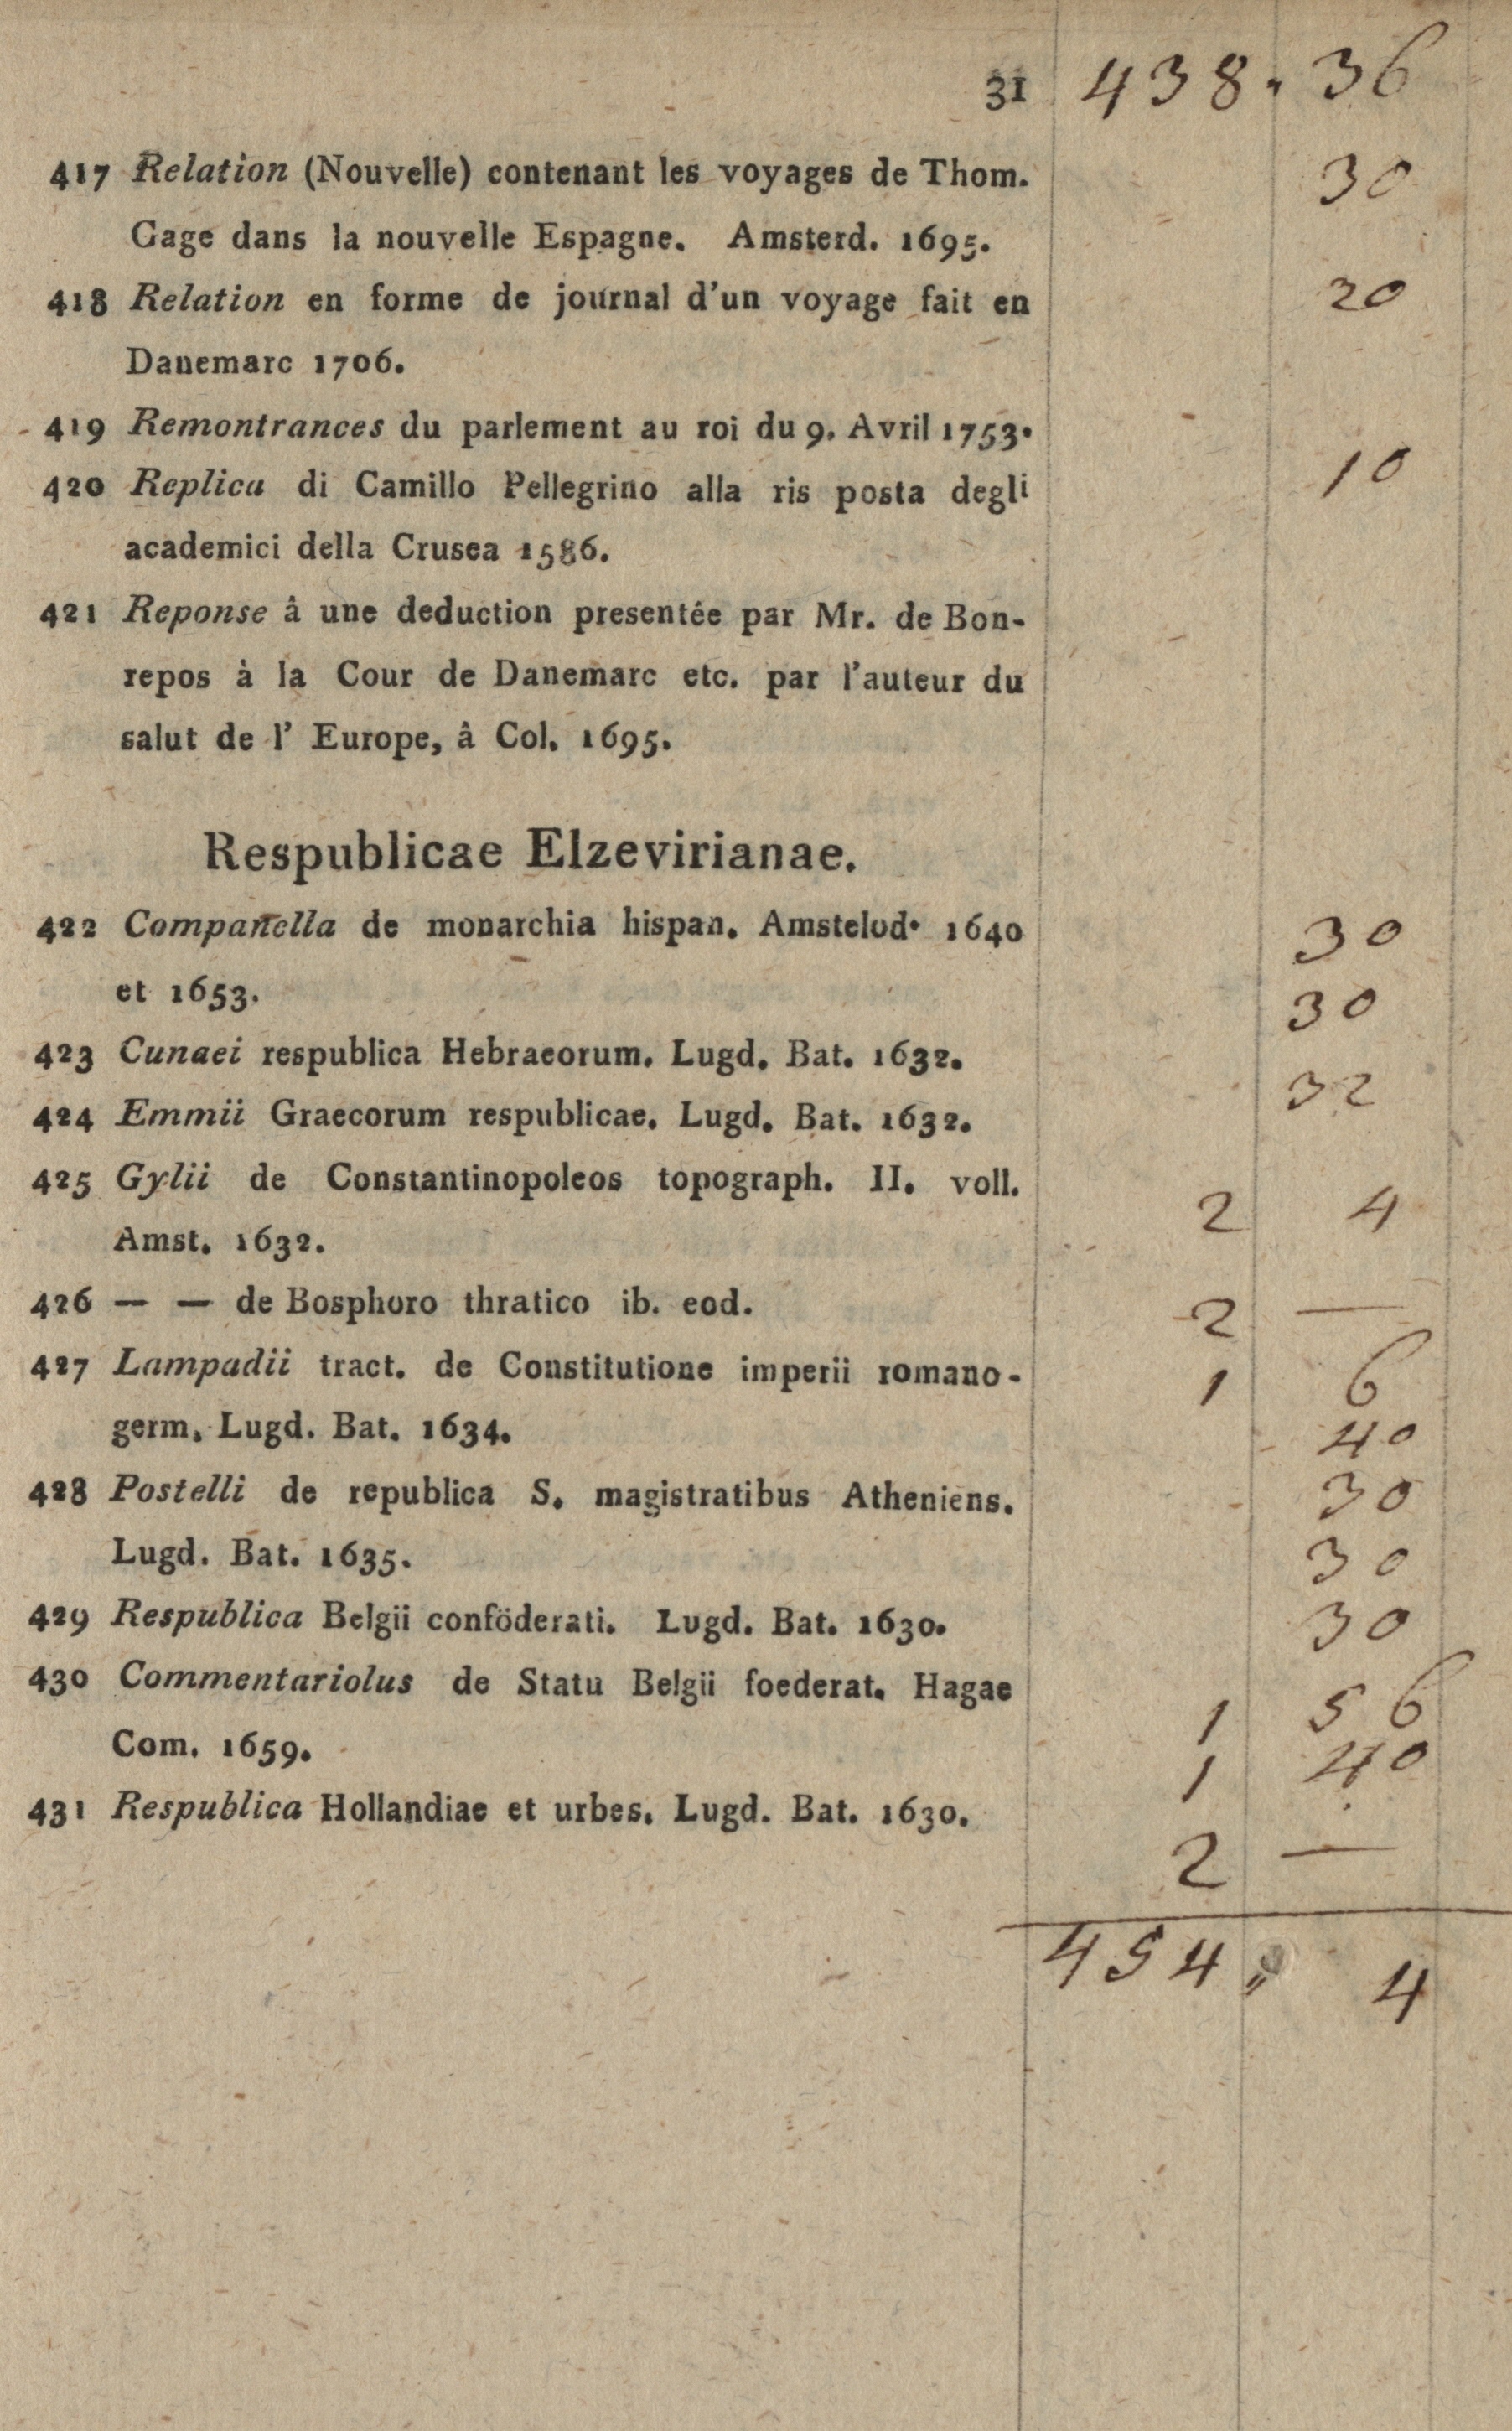 31 438. 36
417 Relation (Nouvelle) contenant les voyages de Thom. 30
Gage dans la nouvelle Espagne. Amsterd. 1695.
418 Relation en forme de journal d'un voyage fait en 20
Danemarc 1706.
419 Remontrances du parlement au roi du 9. Avril 1753.
420 Replica di Camillo Pellegrino alla ris posta degli 10
academici della Crusea 1586.
421 Reponse â une deduction presentée par Mr. de Bon-
repos à la Cour de Danemarc etc. par l'auteur du
salut de l' Europe, â Col. 1695.
Respublicae Elzevirianae.
422 Companella de monarchia hispan. Amstelod. 1640 30
et 1653. 30
423 Cunaei respublica Hebraeorum. Lugd. Bat. 1632.
424 Emmii Graecorum respublicae. Lugd. Bat. 1632. 32
425 Gylii de Constantinopoleos topograph. II. voll. 2 4
Amst. 1632.
426 — — de Bosphoro thratico ib. eod. 2 —
427 Lampadii tract. de Constitutione imperii romano- 1 6
germ. Lugd. Bat. 1634. 40
428 Postelli de republica S. magistratibus Atheniens. 30
Lugd. Bat. 1635. 30
429 Respublica Belgii conföderati. Lugd. Bat. 1630. 30
430 Commentariolus de Statu Belgii foederat. Hagae 1 56
Com. 1659. 1 40
431 Respublica Hollandiae et urbes. Lugd. Bat. 1630.
2 —
454, 4